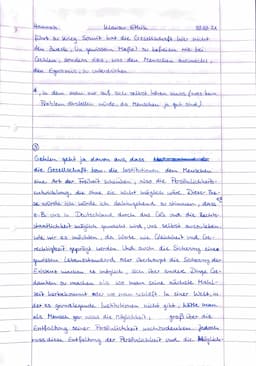 Hannah Klausur Ethik
führt zu Krieg. Somit hat die Gesellschaft hier nicht
den Zweck, (in gewissem Maße) zu befreien wie bei
Gehlen, sondern das, was den Menschen ausmacht,
den Egoismus, zu unterdrücken.
*, in dem man nur auf sich selbst hören muss (was kein
Problem darstellen würde, da Menschen ja gut sind).
Gehlen geht ja davon aus, dass
die Gesellschaft bzw. die Institutionen dem Menschen
eine Art der Freiheit schenken, also die Persönlichkeits-
entwicklung, die ohne sie nicht möglich wäre. Dieser
würde ich dahingehend zustimmen, dass
z.B. uns in Deutschland durch das GG und die Rechts-
staatlichkeit möglich gemacht wird, uns selbst auszuleben,
wie wir es möchten, da Werte wie Gleichheit und Ge-
rechtigkeit gepflegt werden. Und auch die Sicherung eines
gewissen Lebensstandards oder überhaupt die Sicherung der
Existenz machen es möglich, sich über andere Dinge Ge-
danken zu machen als wo man seine nächste Mahl-
zeit herbekommt oder wo man schläft. In einer Welt, in
der es grundlegende Institutionen nicht gibt, hätte man
als Mensch gar nicht die Möglichkeit, groß über die
Entfaltung seiner Persönlichkeit nachzudenken. Jedoch
diese Entfaltung der Persönlichkeit und die Möglich-